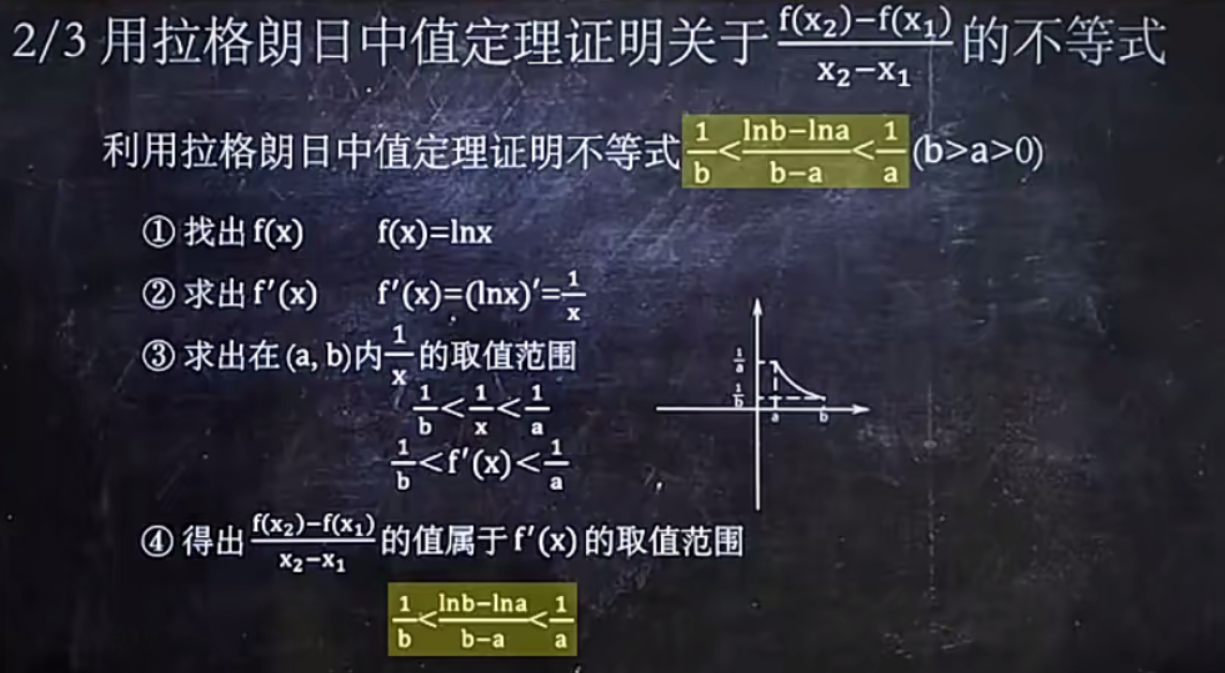 2/3 用拉格朗日中值定理证明关于 f(x₂)−f(x₁)/x₂−x₁ 的不等式
利用拉格朗日中值定理证明不等式 1/b<lnb−lna/b−a<1/a (b>a>0)
① 找出 f(x) f(x)=lnx
② 求出 f′(x) f′(x)=(lnx)′=1/x
③ 求出在 (a, b)内 1/x 的取值范围
1/b<1/x<1/a
1/b<f′(x)<1/a
1/a
1/b
a b
④ 得出 f(x₂)−f(x₁)/x₂−x₁ 的值属于 f′(x) 的取值范围
1/b<lnb−lna/b−a<1/a